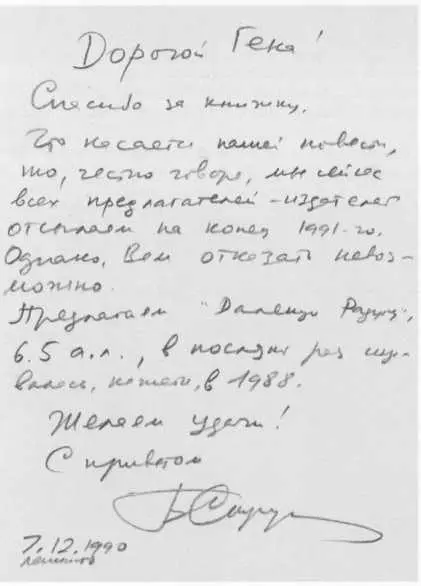 Дорогой Гена!
Спасибо за книжку.
Что касается нашей повести,
то, честно говоря, мы сейчас
всех предлагателей-издателей
отсылаем на конец 1991-го.
Однако, Вам отказать невоз-
можно.
Предлагаем "Далекую Радугу",
6.5 а.л., в последн раз изда-
валась, кажется, в 1988.
Желаем удачи!
С приветом
7.12.1990